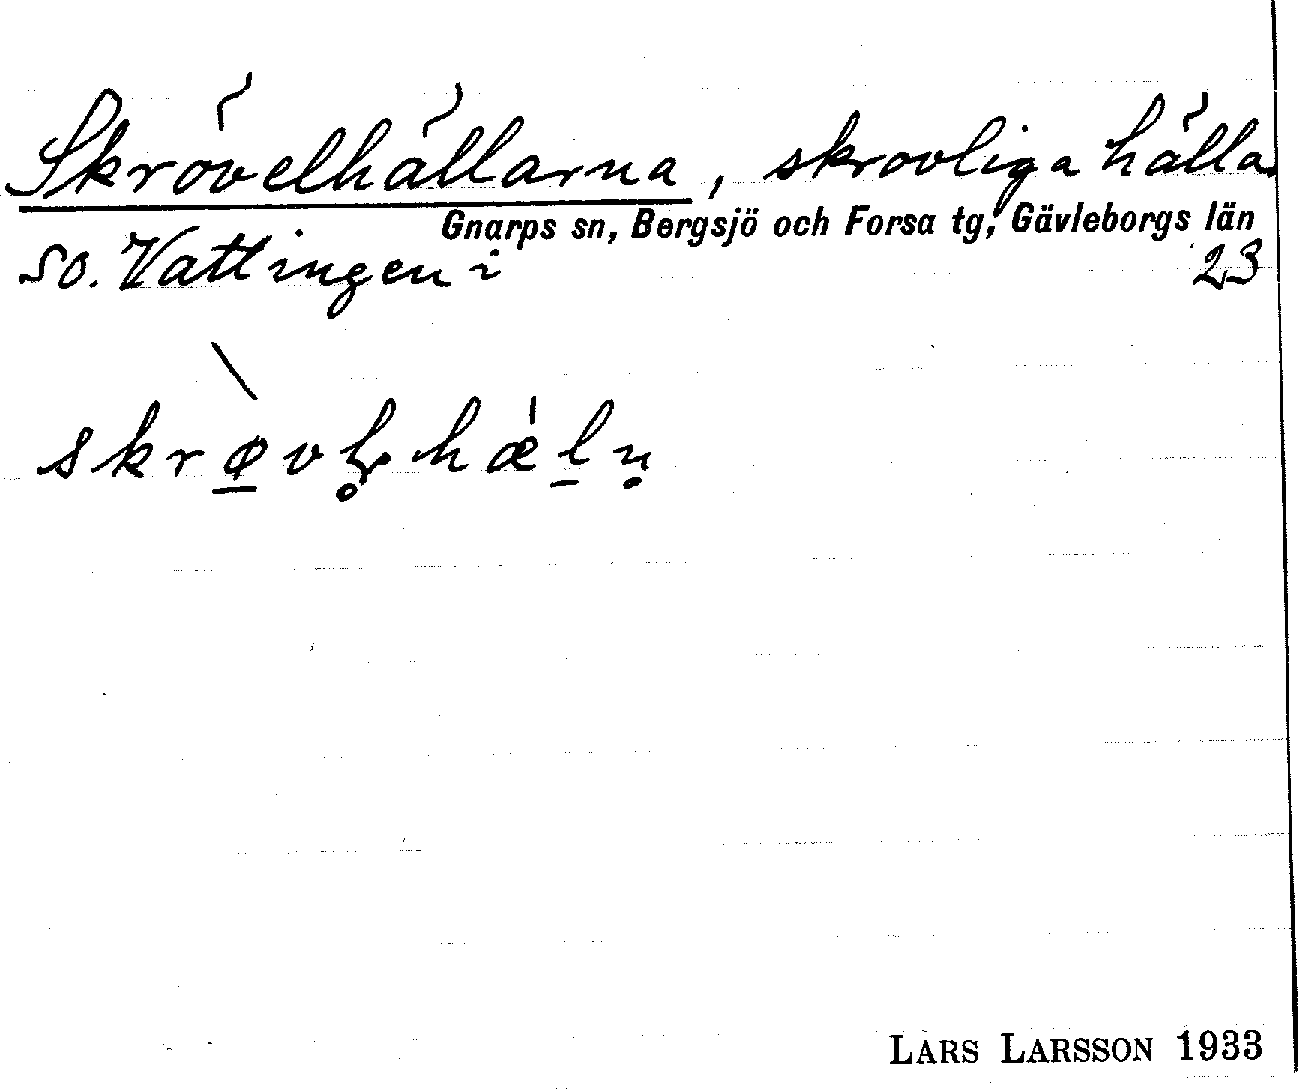 Skrövelhällarna, skrovliga hälla
Gnarps sn, Bergsjö och Forsa tg, Gävleborgs län
so. Vattingen i 23
LARS LARSSON 1933